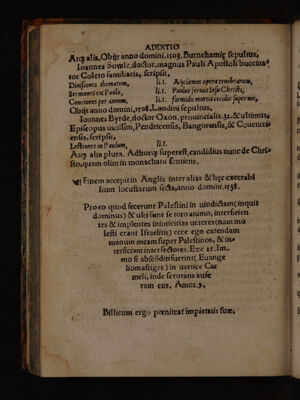 ADDITIO
Atq; alia. Obijt anno domini. 1503. Burnehamiȩ sepultus,
Ioannes Sowle, doctor, magnus Pauli Apostoli buccinator
tor Coleto familiaris, scripsit,
Diuisiones thematum, li.1. Abijciamus opera tenebrarum,
Sermones ex Paulo, li.1. Paulus seruus Iesu Christi,
Conciones per annum, li.1. formido mortis cecidit super me,
Obijt anno domini. 1508. Londini sepultus,
Ioannes Byrde, doctor Oxon, prouincialis. 22. & ultimus,
Episcopus uicissim, Pendricensis, Bangorensis, & Couentriensis,
ensis. scripsit,
Lectiones in Paulum, li.1.
Atq; alia plura. Adhucq; superest, candidius nunc de Christo,
sto, quàm olim in monachatu sentiens.
Finem accepit in Anglia inter alias & hȩc execrabilium
lium locustarum secta, anno domini. 1538.
Pro eo quod fecerunt Palestini in uindictam (inquit
dominus) & ulti sunt se toto animo, interficientes
tes & implentes inimicitias ueteres (nam molesti
lesti erant Israelitis) ecce ego extendam
manum meam super Palestinos, & interficiam
terficiam interfectores. Eze 25. Immo
mo si absconditi fuerint (Euangeliomastiges)
liomastiges) in uertice Carmeli,
meli, inde scrutans auferam
ram eos. Amos. 9.
Bissicum ergo pœniteat impietatis suæ.